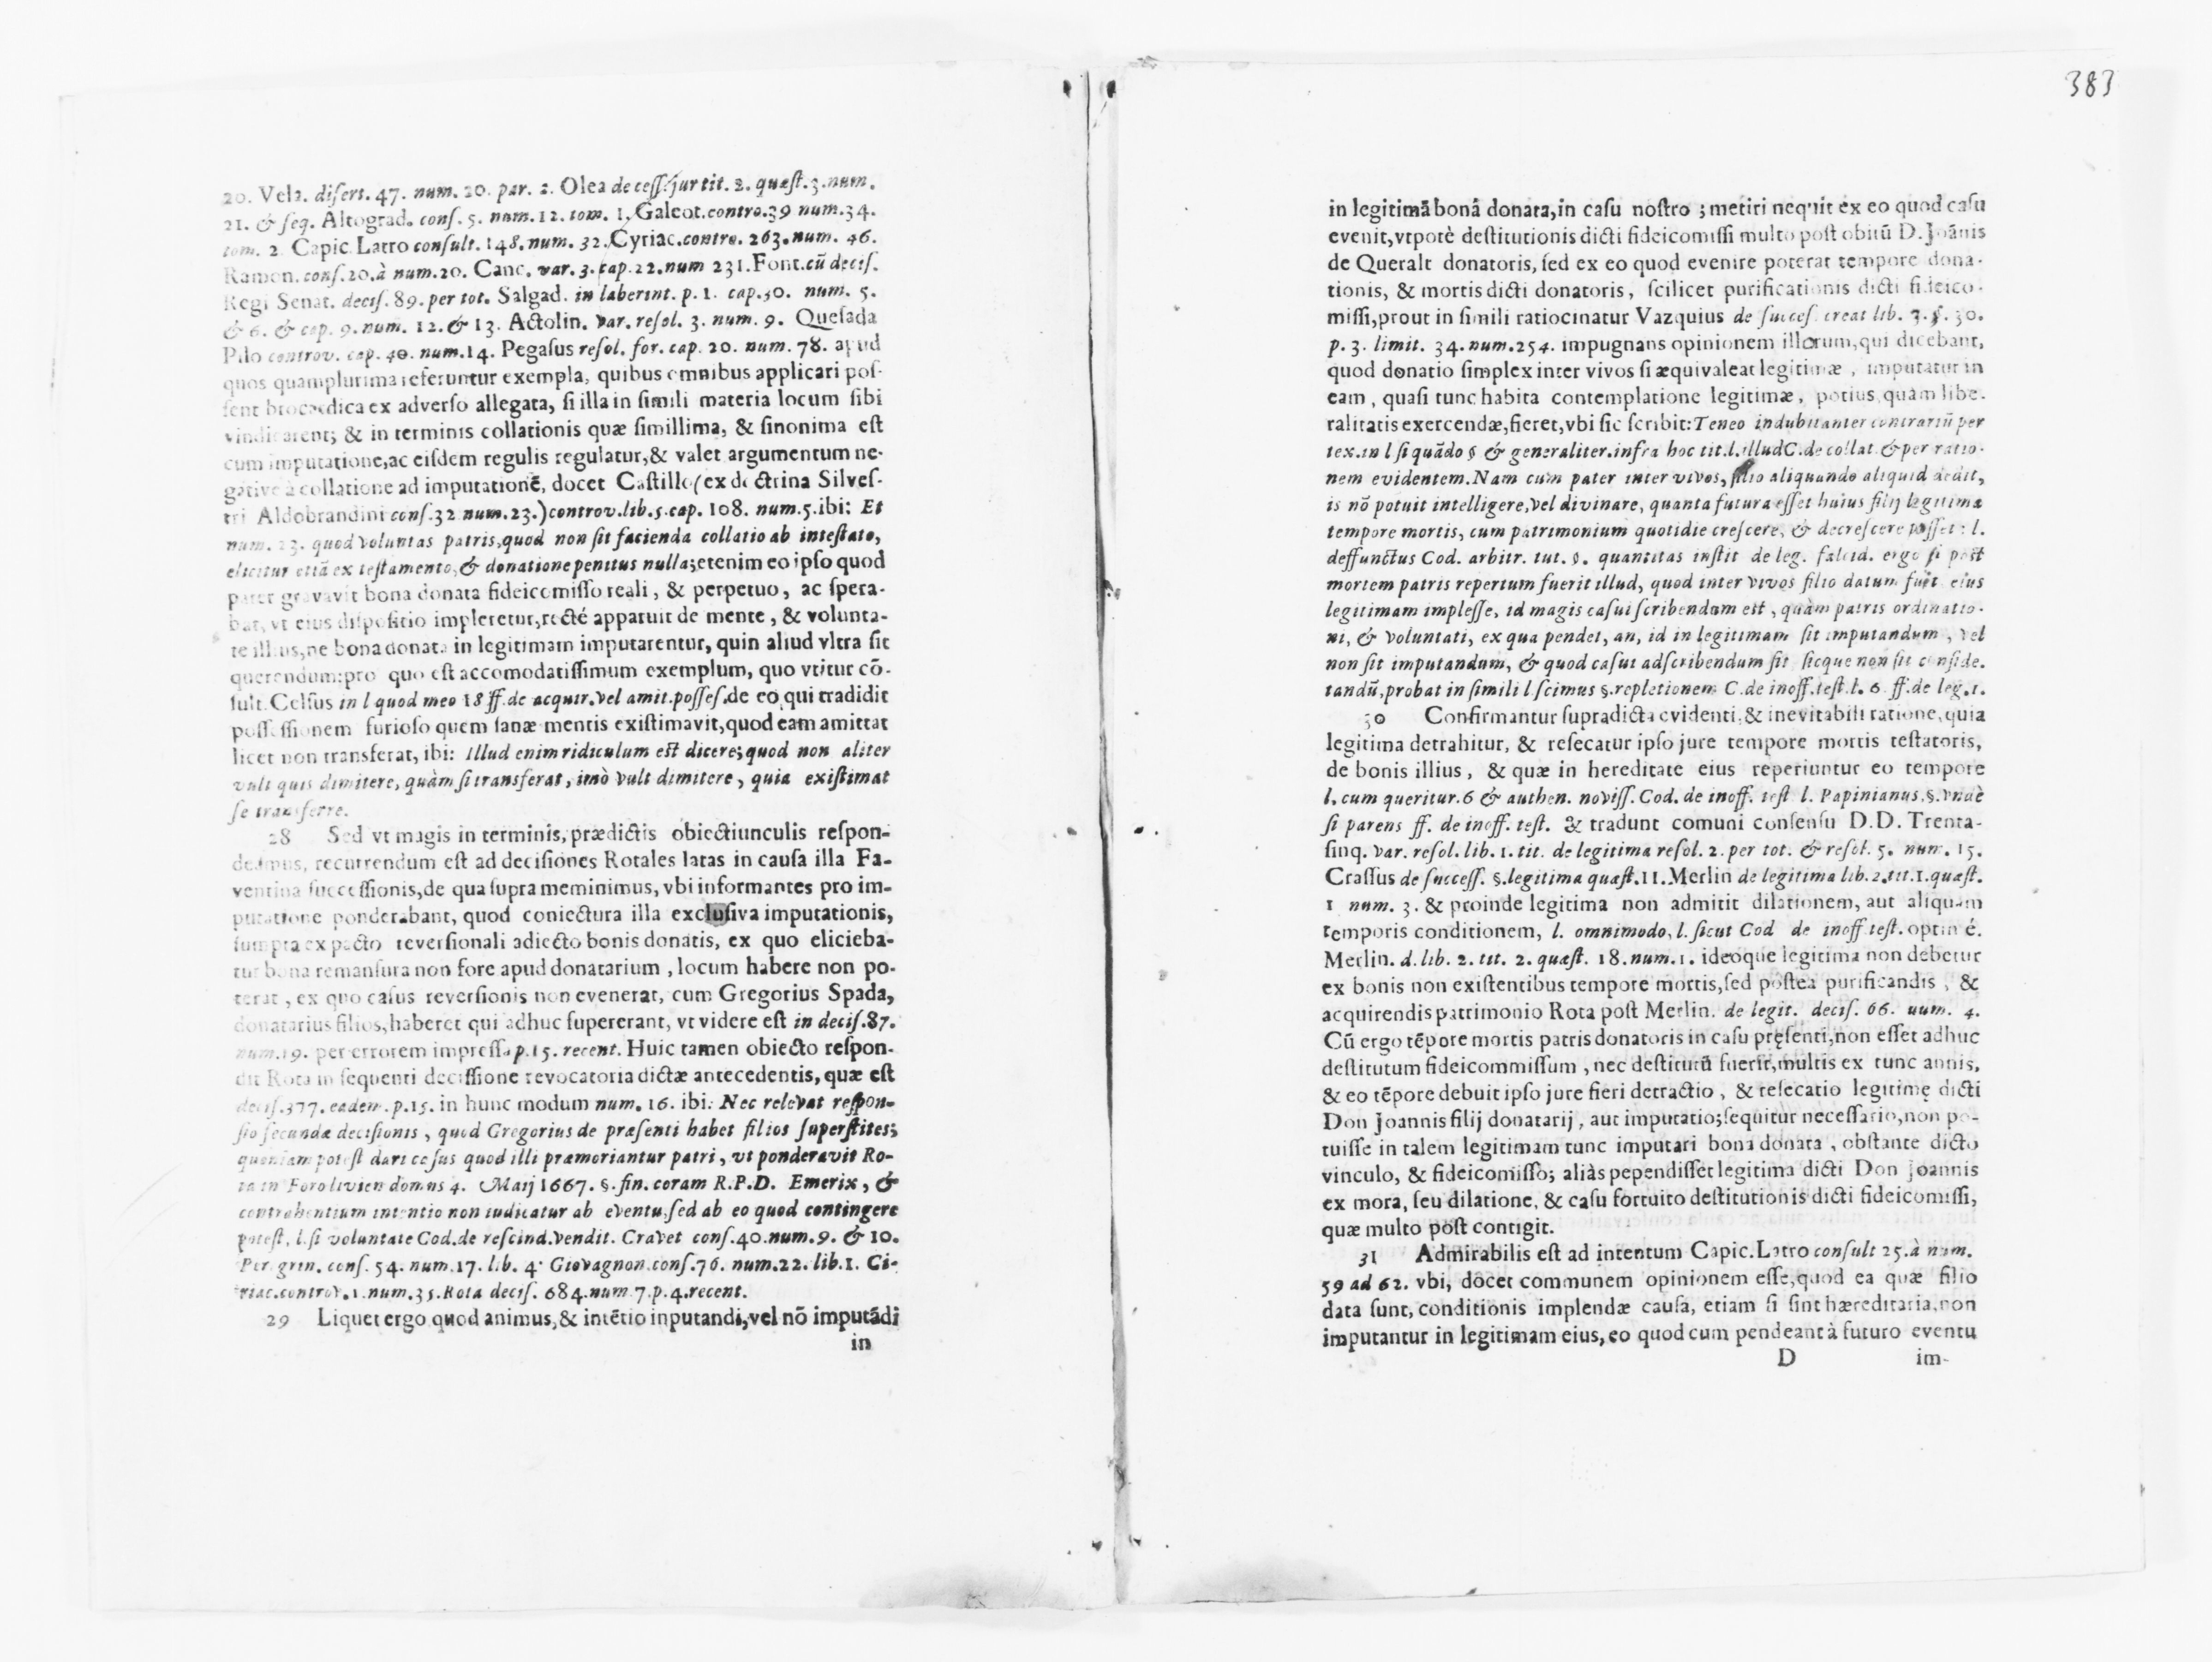 20. Vela. disert. 47. num. 20. par. 2. Olea de cess. jur tit. 2. quæst. 3. num.
21. & seq. Altograd. cons. 5. num. 12. tom. 1. Galeot. contro. 39 num. 34.
tom. 2. Capic. Latro consult. 148. num. 32. Cyriac. contro. 263. num. 46.
Ramon. cons. 20. à num. 20. Canc. var. 3. cap. 22. num 231. Font. cũ decis.
Regi Senat. decis. 89. per tot. Salgad. in laberint. p. 1. cap. 30. num. 5.
& 6. & cap. 9. num. 12. & 13. Actolin. var. resol. 3. num. 9. Quesada
Pilo controv. cap. 40. num. 14. Pegasus resol. for. cap. 20. num. 78. apud
quos quamplurima referuntur exempla, quibus omnibus applicari pos-
sent brocardica ex adverso allegata, si illa in simili materia locum sibi
vindicarent; & in terminis collationis quæ simillima, & sinonima est
cum imputatione, ac eisdem regulis regulatur, & valet argumentum ne-
gative à collatione ad imputationẽ, docet Castillo (ex doctrina Silves-
tri Aldobrandini cons. 32 num. 23.) controv. lib. 5. cap. 108. num. 5. ibi: Et
num. 23. quod voluntas patris, quod non sit facienda collatio ab intestato,
elicitur etiã ex testamento, & donatione penitus nulla; etenim eo ipso quod
pater gravavit bona donata fideicomisso reali, & perpetuo, ac spera-
bat, vt eius dispositio impleretur, recté apparuit de mente, & volunta-
te illius, ne bona donata in legitimam imputarentur, quin aliud vltra sit
querendum: pro quo est accomodatissimum exemplum, quo vtitur cõ-
sult. Celsus in l quod meo 18 ff. de acquir. vel amit. posses. de eo, qui tradidit
possessionem furioso quem sanæ mentis existimavit, quod eam amittat
licet non transferat, ibi: Illud enim ridiculum est dicere; quod non aliter
vult quis dimitere, quàm si transferat, imò vult dimitere, quia existimat
se transferre.
28 Sed vt magis in terminis, prædictis obiectiunculis respon-
deamus, recurrendum est ad decisiones Rotales latas in causa illa Fa-
ventina successionis, de qua supra meminimus, vbi informantes pro im-
putatione ponderabant, quod coniectura illa exclusiva imputationis,
sumpta ex pacto reversionali adiecto bonis donatis, ex quo elicieba-
tur bona remansura non fore apud donatarium, locum habere non po-
terat, ex quo casus reversionis non evenerat, cum Gregorius Spada,
donatarius filios, haberet qui adhuc supererant, vt videre est in decis. 87.
num. 19. per errorem impressa p. 15. recent. Huic tamen obiecto respon-
dit Rota in sequenti decissione revocatoria dictæ antecedentis, quæ est
decis. 377. eadem. p. 15. in hunc modum num. 16. ibi: Nec relevat respon-
sio secundæ decisionis, quod Gregorius de præsenti habet filios superstites;
quoniam potest dari casus quod illi præmoriantur patri, vt ponderavit Ro-
ta in Forolivien domus 4. Maij 1667. §. fin. coram R.P.D. Emerix, &
contrahentium intentio non iudicatur ab eventu, sed ab eo quod contingere
potest, l. si voluntate Cod. de rescind. vendit. Cravet cons. 40. num. 9. & 10.
Peregrin. cons. 54. num. 17. lib. 4. Giovagnon. cons. 76. num. 22. lib. 1. Ci-
riac. controv. 1. num. 35. Rota decis. 684. num. 7. p. 4. recent.
29 Liquet ergo quod animus, & intẽtio inputandi, vel nõ imputãdi
in
383
in legitimã bonâ donata, in casu nostro; metiri nequit ex eo quod casu
evenit, vtpotè destitutionis dicti fideicomissi multo post obitũ D. Joãnis
de Queralt donatoris, sed ex eo quod evenire poterat tempore dona-
tionis, & mortis dicti donatoris, scilicet purificationis dicti fideico-
missi, prout in simili ratiocinatur Vazquius de succes. creat lib. 3. §. 30.
p. 3. limit. 34. num. 254. impugnans opinionem illorum, qui dicebant,
quod donatio simplex inter vivos si æquivaleat legitimæ, imputatur in
eam, quasi tunc habita contemplatione legitimæ, potius, quàm libe-
ralitatis exercendæ, fieret, vbi sic scribit: Teneo indubitanter contrariũ per
tex. in l si quãdo § & generaliter. infra hoc tit. l. illud C. de collat. & per ratio-
nem evidentem. Nam cum pater inter vivos, filio aliquando aliquid dedit,
is nõ potuit intelligere, vel divinare, quanta futura esset huius filij legitima
tempore mortis, cum patrimonium quotidie crescere, & decrescere posset: l.
deffunctus Cod. arbitr. tut. §. quantitas instit de leg. falcid. ergo si post
mortem patris repertum fuerit illud, quod inter vivos filio datum fuit eius
legitimam implesse, id magis casui scribendum est, quàm patris ordinatio-
ni, & voluntati, ex qua pendet, an, id in legitimam sit imputandum, vel
non sit imputandum, & quod casui adscribendum sit sicque non sit conside-
tandũ, probat in simili l. scimus §. repletionem C. de inoff. test. l. 6 ff. de leg. 1.
30 Confirmantur supradicta evidenti, & inevitabili ratione, quia
legitima detrahitur, & resecatur ipso jure tempore mortis testatoris,
de bonis illius, & quæ in hereditate eius reperiuntur eo tempore
l. cum queritur. 6 & authen. noviss. Cod. de inoff. test l. Papinianus. §. vndè
si parens ff. de inoff. test. & tradunt comuni consensu D.D. Trenta-
sinq. var. resol. lib. 1. tit. de legitima resol. 2. per tot. & resol. 5. num. 15.
Crassus de success. §. legitima quæst. 11. Merlin de legitima lib. 2. tit. 1. quæst.
1 num. 3. & proinde legitima non admitit dilationem, aut aliquam
temporis conditionem, l. omnimodo, l. sicut Cod de inoff test. optin é.
Merlin. d. lib. 2. tit. 2. quæst. 18. num. 1. ideoque legitima non debetur
ex bonis non existentibus tempore mortis, sed postea purificandis, &
acquirendis patrimonio Rota post Merlin. de legit. decis. 66. uum. 4.
Cũ ergo tẽpore mortis patris donatoris in casu pręsenti, non esset adhuc
destitutum fideicommissum, nec destitutũ fuerit, multis ex tunc annis,
& eo tẽpore debuit ipso jure fieri detractio, & resecatio legitimę dicti
Don Joannis filij donatarij, aut imputatio; sequitur necessario, non po-
tuisse in talem legitimam tunc imputari bona donata, obstante dicto
vinculo, & fideicomisso; aliàs pependisset legitima dicti Don Joannis
ex mora, seu dilatione, & casu fortuito destitutionis dicti fideicomissi,
quæ multo post contigit.
31 Admirabilis est ad intentum Capic. Latro consult 25. à num.
59 ad 62. vbi, docet communem opinionem esse, quod ea quæ filio
data sunt, conditionis implendæ causa, etiam si sint hæreditaria, non
imputantur in legitimam eius, eo quod cum pendeant à futuro eventu
D im-